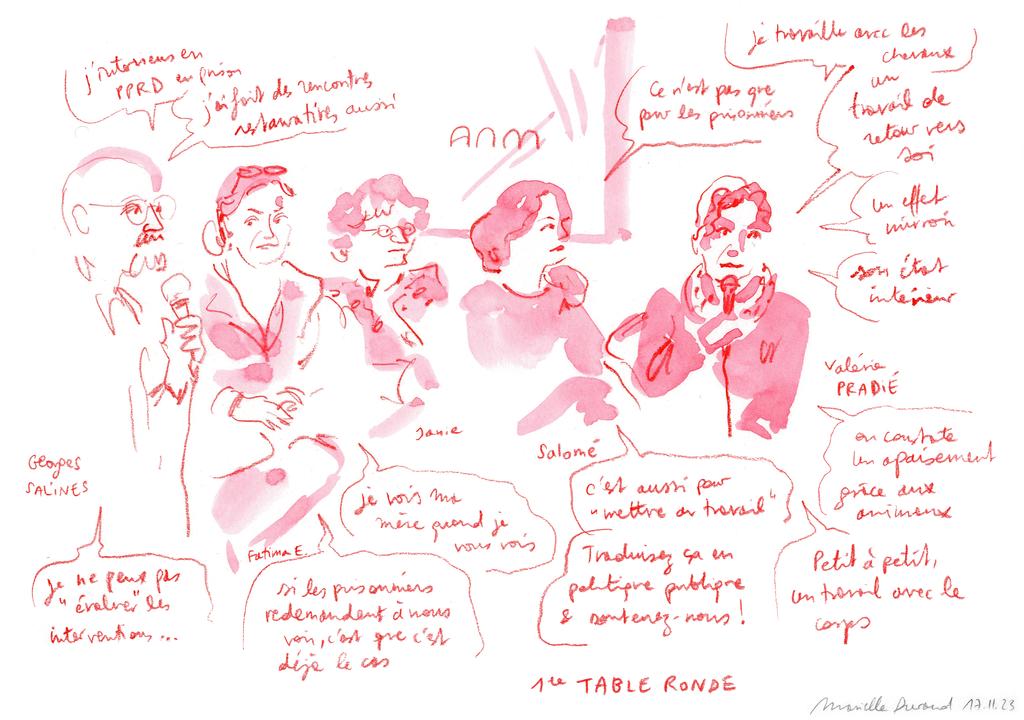 j'interviens en
PPRD en prison
j'ai fait des rencontres
restauratives aussi
Ce n'est pas que
pour les prisonniers
je travaille avec les
chevaux
un
travail de
retour vers
soi
un effet
mirroir
son état
intérieur
Valérie
PRADIÉ
on constate
un apaisement
grâce aux
animaux
Petit à petit,
un travail avec le
corps
Georges
SALINES
je ne peux pas
"évaluer" les
interventions...
Fatima E.
si les prisonniers
redemandent à nous
voir, c'est que c'est
déjà le cas
je vois ma
mère quand je
vous vois
Salomé
c'est aussi pour
"mettre au travail"
Traduisez ça en
politique publique
& soutenez-nous !
1ère TABLE RONDE
Marielle Durand 17.11.23